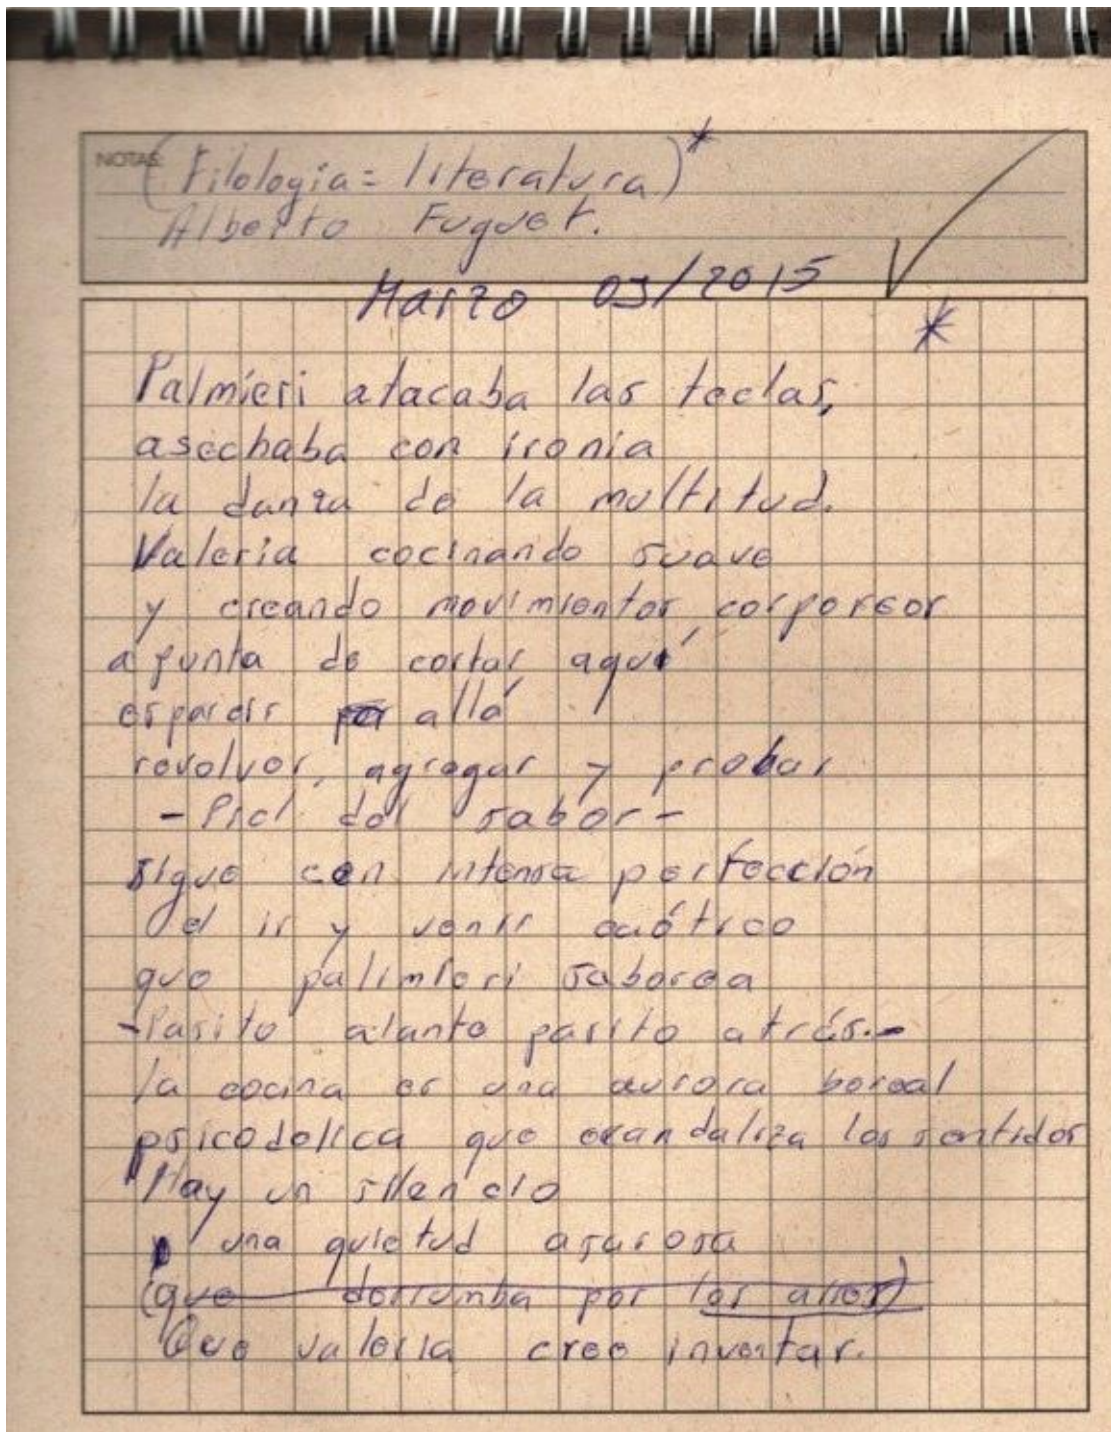 NOTAS:
(Filologia = literatura)*
Alberto Fuguet.
Marzo 03/2015
*
Palmieri atacaba las teclas,
asechaba con ironia
la danza de la multitud.
Valeria cocinando suave
y creando movimientos corporeos
a punta de cortar aquí
esparcir por allá
revolver, agregar y probar
-Piel del sabor-
sigue con intensa perfección
el ir y venir caótico
que palimieri saborea
-Pasito alante pasito atrás.-
la cocina es una aurora boreal
psicodelica que escandaliza los sentidos
Hay un silencio
y una quietud asarosa
(que derrumba por los aires)
Que valeria cree inventar.